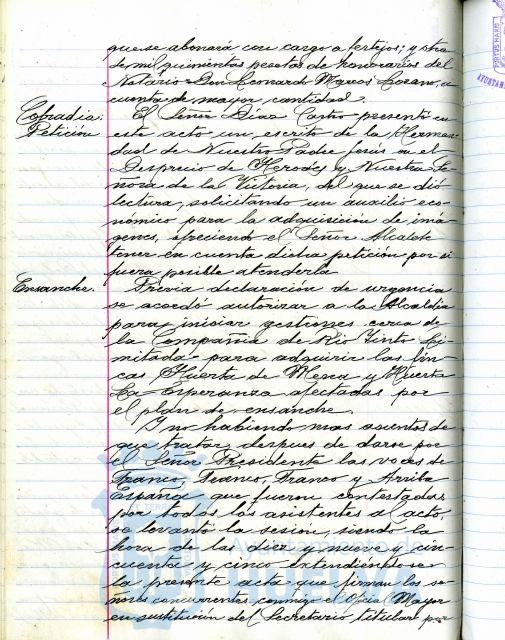 que se abonará con cargo a festejos; y otra
de mil quinientas pesetas de honorarios del
Notario Don Leonardo Marcos Lozano, a
cuenta de mayor cantidad.
Cofradia:
Petición
El Señor Diaz Castro presentó en
este acto un escrito de la Herman-
dad de Nuestro Padre Jesús en el
Desprecio de Herodes y Nuestra Se-
ñora de la Victoria, del que se dió
lectura, solicitando un auxilio eco-
nómico para la adquisición de imá-
genes, ofreciendo el Señor Alcalde
tener en cuenta dicha petición por si
fuera posible atenderla.
Ensanche.
Previa declaración de urgencia
se acordó autorizar a la Alcaldia
para iniciar gestiones cerca de
la Compañia de Rio Tinto Li-
mitada para adquirir las fin-
cas Huerta de Mena y Huerta
La Esperanza afectadas por
el plan de ensanche.
Y no habiendo mas asuntos de
que tratar, despues de darse por
el Señor Presidente las voces de
Franco, Franco, Franco y Arriba
España que fueron contestadas
por todos los asistentes al acto,
se levantó la sesión, siendo la
hora de las diez y nueve y cin-
cuenta y cinco extendiéndose
la presente acta que firman los se-
ñores concurrentes conmigo el Oficial Mayor
en sustitución del Secretario titular por
Ayuntamiento de
HUELVA